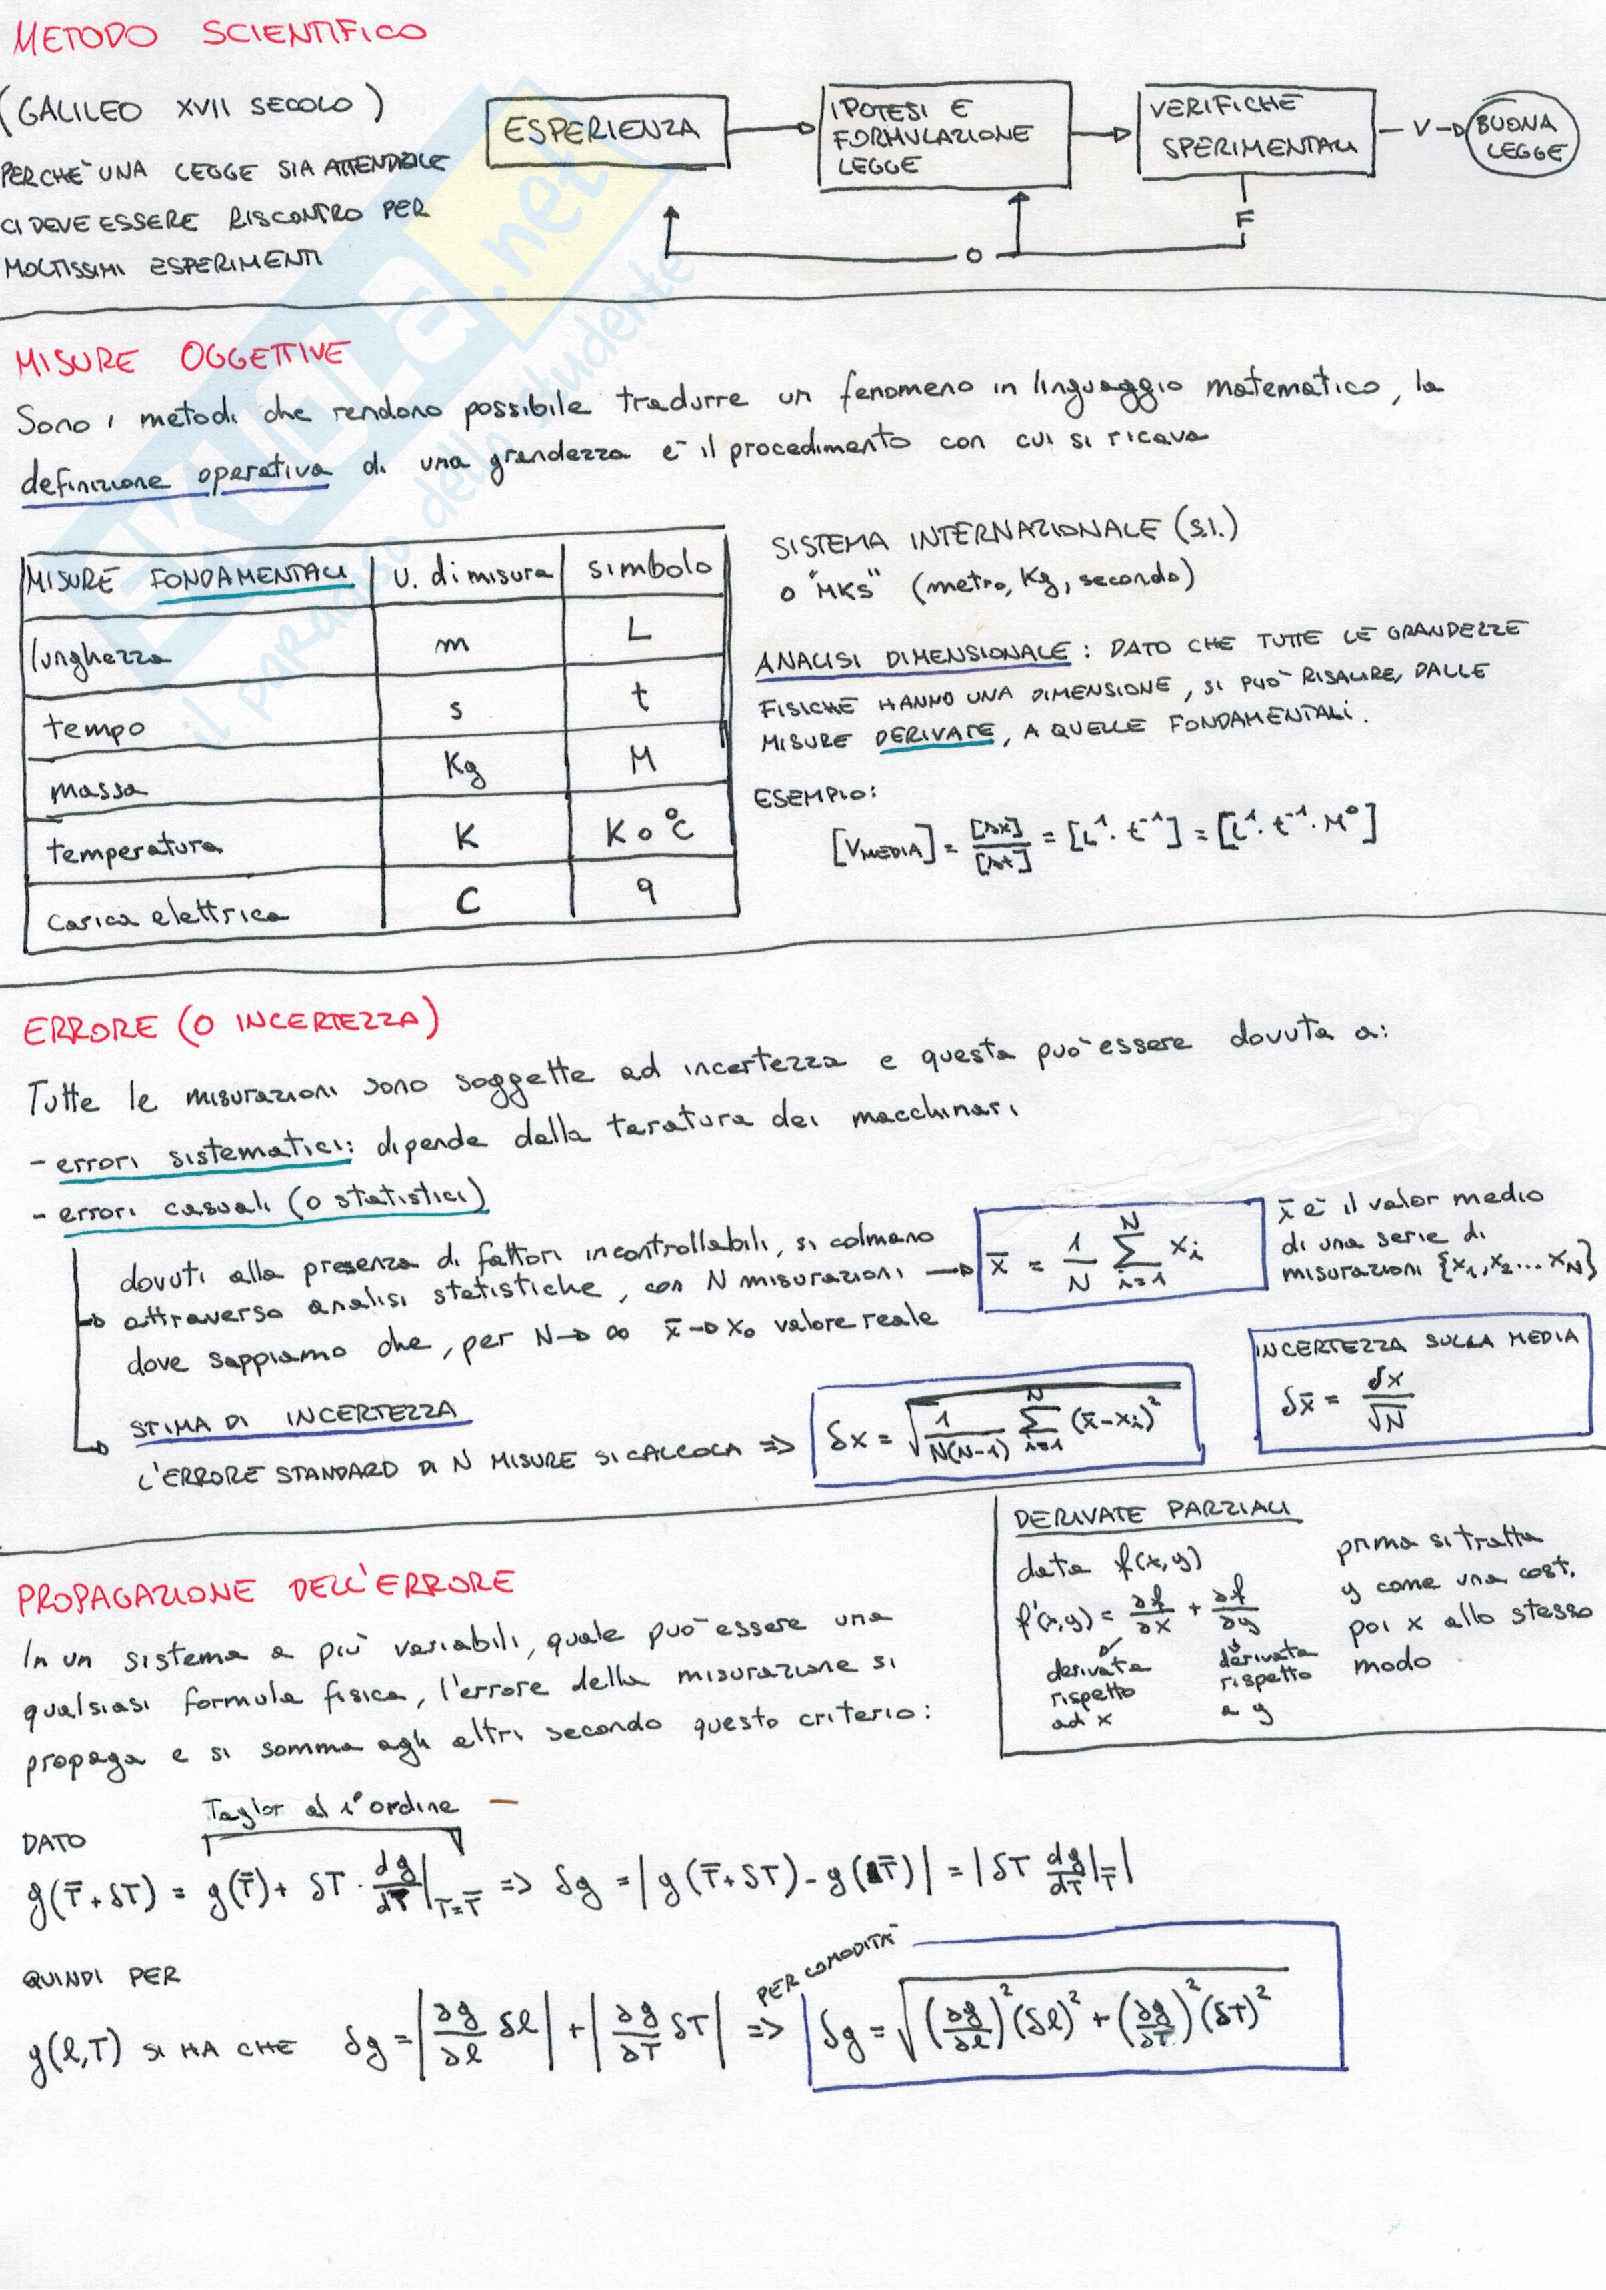 METODO SCIENTIFICO
(GALILEO XVII SECOLO)
PERCHÈ UNA LEGGE SIA ATTENDIBILE
CI DEVE ESSERE RISCONTRO PER
MOLTISSIMI ESPERIMENTI
ESPERIENZA
IPOTESI E
FORMULAZIONE
LEGGE
VERIFICHE
SPERIMENTALI
V
BUONA
LEGGE
F
O
MISURE OGGETTIVE
Sono i metodi che rendono possibile tradurre un fenomeno in linguaggio matematico, la
definizione operativa di una grandezza è il procedimento con cui si ricava
MISURE FONDAMENTALI | U. di misura | simbolo
lunghezza | m | L
tempo | s | t
massa | Kg | M
temperatura | K | K o °C
carica elettrica | C | q
SISTEMA INTERNAZIONALE (S.I.)
o "MKS" (metro, Kg, secondo)
ANALISI DIMENSIONALE: DATO CHE TUTTE LE GRANDEZZE
FISICHE HANNO UNA DIMENSIONE, SI PUÒ RISALIRE, DALLE
MISURE DERIVATE, A QUELLE FONDAMENTALI.
ESEMPIO:
[V_MEDIA] = [Δx]/[Δt] = [L¹ · t⁻¹] = [L¹ · t⁻¹ · M⁰]
ERRORE (O INCERTEZZA)
Tutte le misurazioni sono soggette ad incertezza e questa può essere dovuta a:
- errori sistematici: dipende dalla taratura dei macchinari
- errori casuali (o statistici)
dovuti alla presenza di fattori incontrollabili, si colmano
attraverso analisi statistiche, con N misurazioni →
dove sappiamo che, per N → ∞ x̄ → x₀ valore reale
x̄ = 1/N ∑_{i=1}^{N} xᵢ
x̄ è il valor medio
di una serie di
misurazioni {x₁, x₂ ... x_N}
STIMA DI INCERTEZZA
L'ERRORE STANDARD DI N MISURE SI CALCOLA ⇒
δx = √(1/(N(N-1)) ∑_{i=1}^{N} (x̄ - xᵢ)²)
INCERTEZZA SULLA MEDIA
δx̄ = δx/√N
DERIVATE PARZIALI
data f(x,y)
f'(x,y) = ∂f/∂x + ∂f/∂y
derivata rispetto ad x
derivata rispetto a y
prima si tratta
y come una cost.
poi x allo stesso
modo
PROPAGAZIONE DELL'ERRORE
In un sistema a più variabili, quale può essere una
qualsiasi formula fisica, l'errore della misurazione si
propaga e si somma agli altri secondo questo criterio:
Taylor al 1° ordine
DATO
g(T̄ + δT) = g(T̄) + δT · dg/dT |_{T=T̄} ⇒ δg = |g(T̄ + δT) - g(T̄)| = |δT dg/dT|_T̄|
QUINDI PER
g(l,T) SI HA CHE δg = |∂g/∂l δl| + |∂g/∂T δT| ⇒
PER COMODITÀ
δg = √((∂g/∂l)² (δl)² + (∂g/∂T)² (δT)²)
SKUOLA.net
il paradiso dello studente